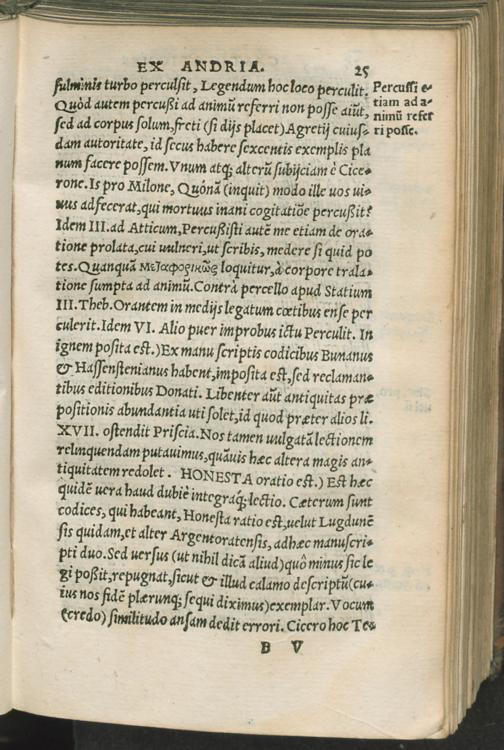 EX ANDRIA. 25
fulminis turbo perculsit, Legendum hoc loco perculit.
Quòd autem percußi ad animũ referri non posse aiũt,
sed ad corpus solum, freti (si dijs placet) Agretij cuius-
dam autoritate, id secus habere sexcentis exemplis pla
num facere possem. Vnum atq; alterũ subijciam è Cice-
rone. Is pro Milone, Quonã (inquit) modo ille vos vi-
uus adfecerat, qui mortuus inani cogitatiõe percußit?
Idem III. ad Atticum, Percußisti autẽ me etiam de ora-
tione prolata, cui vulneri, ut scribis, medere si quid po
tes. Quanquã μεταφορικῶς loquitur, à corpore trala-
tione sumpta ad animũ. Contrà percello apud Statium
III. Theb. Orantem in medijs legatum cœtibus ense per
culerit. Idem VI. Alio puer improbus ictu Perculit. In
ignem posita est.) Ex manu scriptis codicibus Bunanus
& Hassenstenianus habent, imposita est, sed reclaman-
tibus editionibus Donati. Libenter aũt antiquitas præ
positionis abundantia uti solet, id quod præter alios li.
XVII. ostendit Priscia. Nos tamen vulgatã lectionem
relinquendam putauimus, quãuis hæc altera magis an-
tiquitatem redolet. HONESTA oratio est.) Est hæc
quidẽ uera haud dubiè integraq́; lectio. Cæterum sunt
codices, qui habeant, Honesta ratio est, uelut Lugdunẽ
sis quidam, et alter Argentoratensis, adhæc manuscri-
pti duo. Sed uersus (ut nihil dicã aliud) quô minus sic le
gi poßit, repugnat, sicut & illud calamo descriptũ (cu-
ius nos fidẽ plærunq; sequi diximus) exemplar. Vocum
(credo) similitudo ansam dedit errori. Cicero hoc Te-
B V
Percussi e-
tiam ad a-
nimũ refer
ri posse.